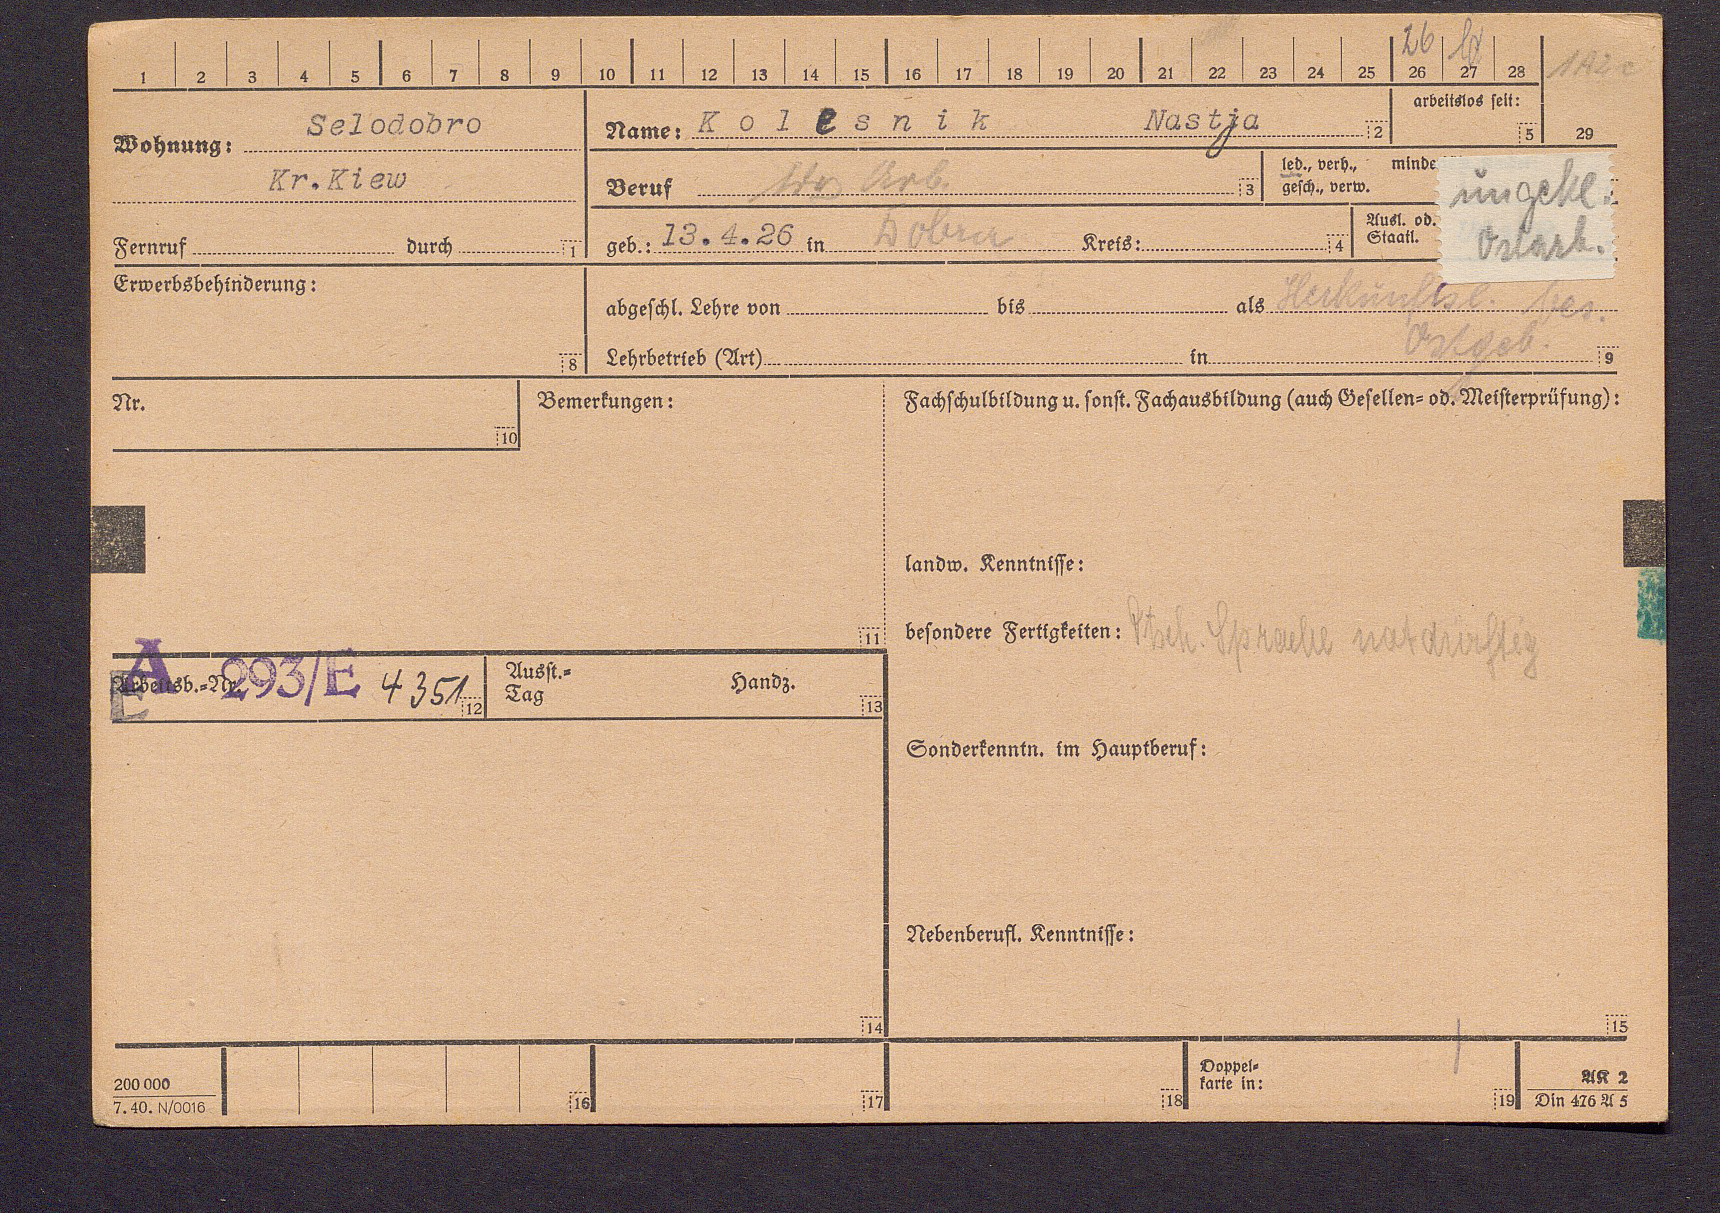 1 2 3 4 5 6 7 8 9 10 11 12 13 14 15 16 17 18 19 20 21 22 23 24 25 26 27 28 29
26
Wohnung: Selodobro
Kr.Kiew
Fernruf durch 1
Name: Kolesnik Nastja 2
arbeitslos seit: 5
Beruf Arb. 3
led., verh., minde
gesch., verw.
geb.: 13.4.26 in Dobra Kreis: 4
Ausl. od.
Staatl.
ungekl.
Ostarb.
Erwerbsbehinderung: 8
abgeschl. Lehre von bis als Herkunftsl. bes.
Ostgeb.
Lehrbetrieb (Art) in 9
Nr. 10
Bemerkungen: 11
Fachschulbildung u. sonst. Fachausbildung (auch Gesellen= od. Meisterprüfung):
landw. Kenntnisse:
besondere Fertigkeiten: Dtsch. Sprache notdürftig
A
E
Arbeitsb.=Nr. 293/E 4351 12
Ausst.=
Tag Handz. 13
Sonderkenntn. im Hauptberuf:
Nebenberufl. Kenntnisse:
14 15
200 000
7. 40. N/0016
16 17 18
Doppel=
karte in: 19
AK 2
Din 476 A 5